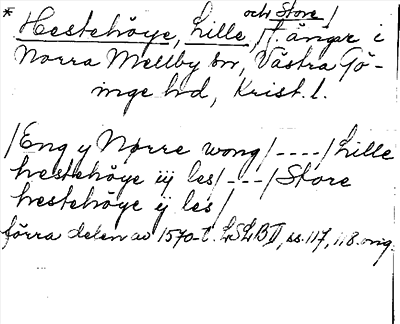 * Hestehöye, Lille och Store /, f. ängar i
Norra Mellby sn, Västra Gö-
inge hd, Krist. l.
/Eng y Norre wong/----/Lille
hestehöye iij les/---/Store
hestehöye ij les/
förra delen av 1570-t. LSLB II, ss. 117, 118 orig.